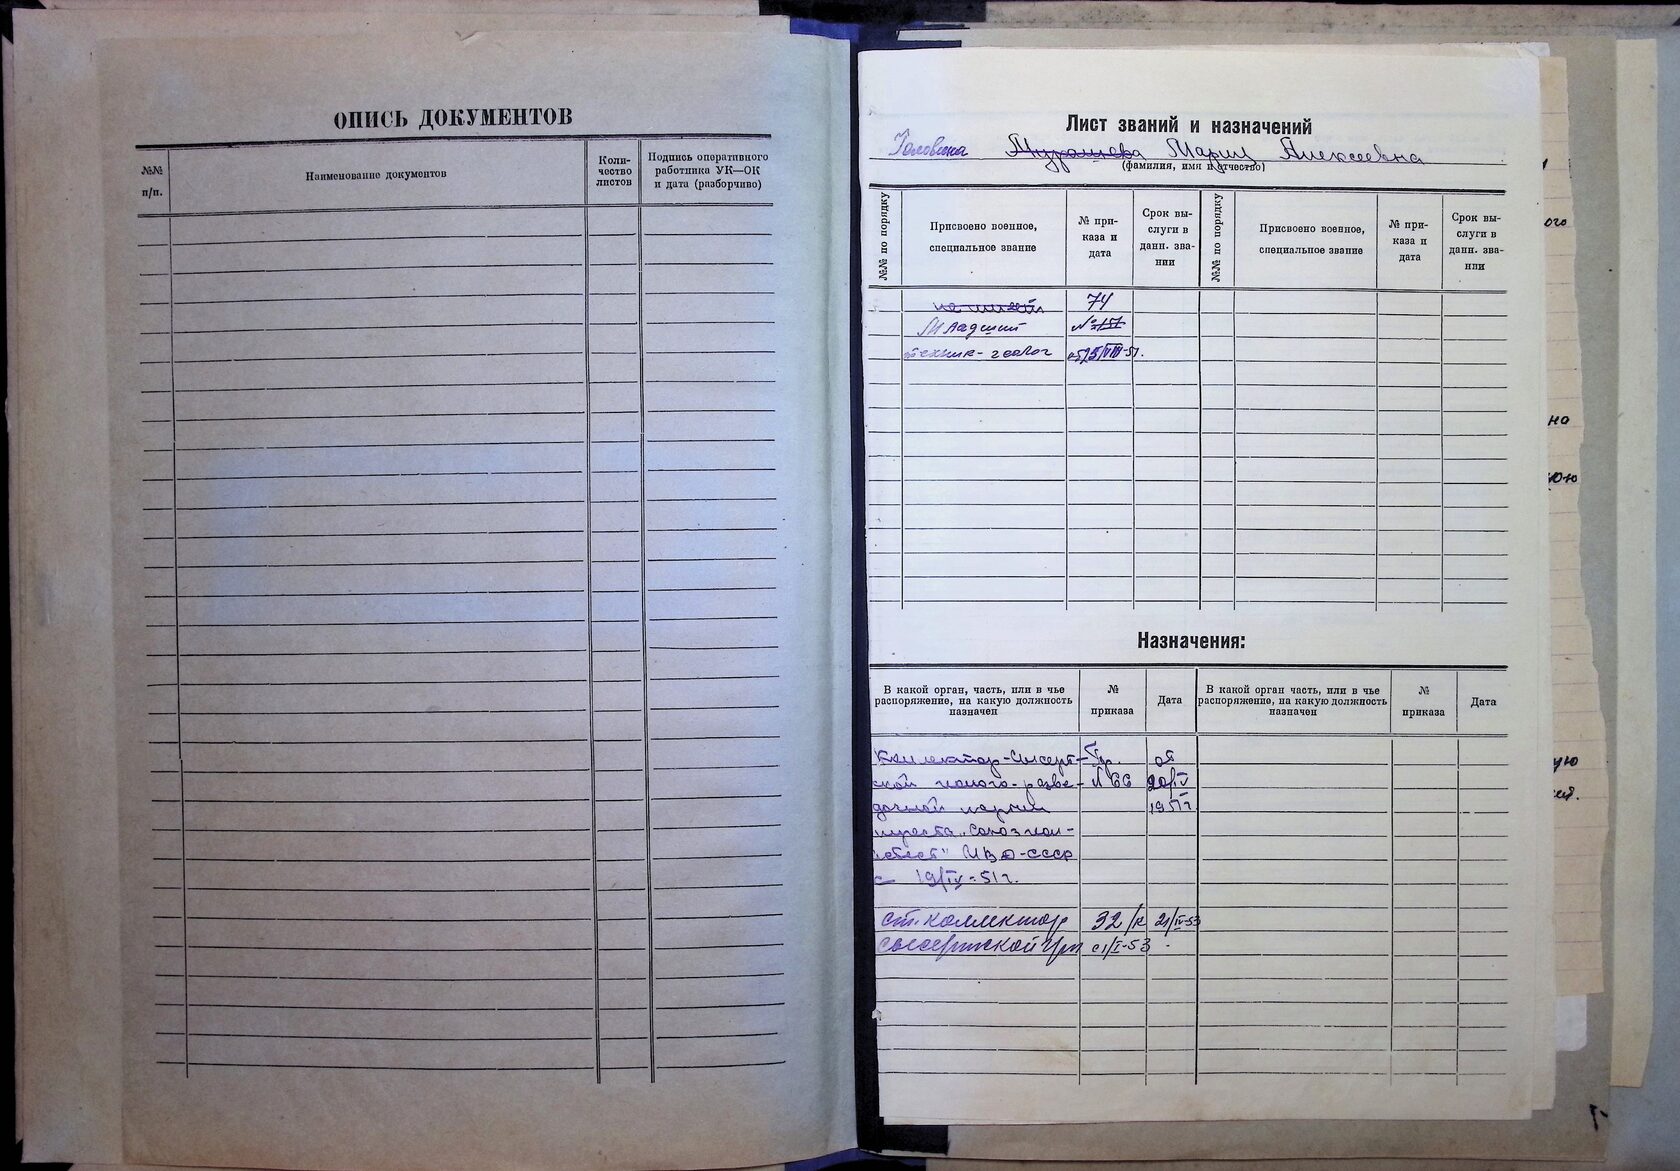 ОПИСЬ ДОКУМЕНТОВ
№№ п/п.
Наименование документов
Коли-
чество
листов
Подпись оперативного
работника УК—ОК
и дата (разборчиво)
Лист званий и назначений
Головина Мурашева Мария Алексеевна
(фамилия, имя и отчество)
№№ по порядку
Присвоено военное,
специальное звание
№ при-
каза и
дата
Срок вы-
слуги в
данн. зва-
нии
№№ по порядку
Присвоено военное,
специальное звание
№ при-
каза и
дата
Срок вы-
слуги в
данн. зва-
нии
74
Младший №151
техник-геолог от 15/VIII-51.
Назначения:
В какой орган, часть, или в чье
распоряжение, на какую должность
назначен
№
приказа
Дата
В какой орган часть, или в чье
распоряжение, на какую должность
назначен
№
приказа
Дата
Коллектор-Сысерт- Пр. от
ской геолого-разве- № 66 20/IV
дочной партии 1951г.
треста "Союз
МВД-СССР
с 19/IV-51г.
Ст. коллектор 32/к 21/IV-53
Сысертской грп с 1/I-53
ого
на
ою
ую